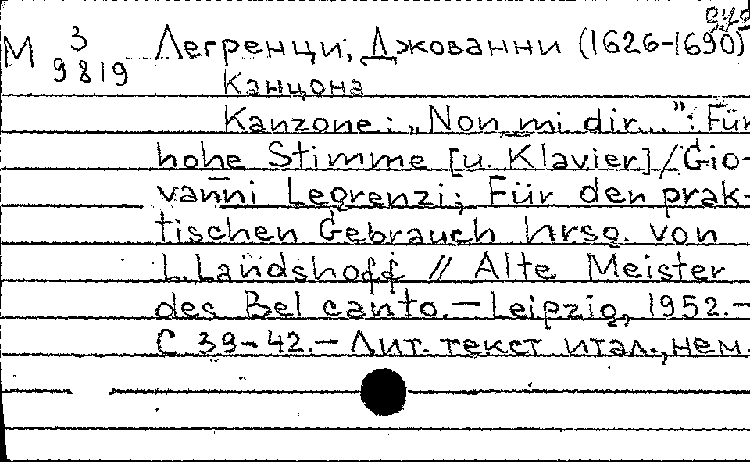 М 3 Легренци, Джованни (1626-1690)
9819
Канцона
Kanzone: „Non mi dir...”: Für
hohe Stimme [u. Klavier] / Gio-
vanni Legrenzi; Für den prak-
tischen Gebrauch hrsg. von
L. Landshoff // Alte Meister
des Bel canto. — Leipzig, 1952. —
С 39-42. — Лит. текст итал., нем.